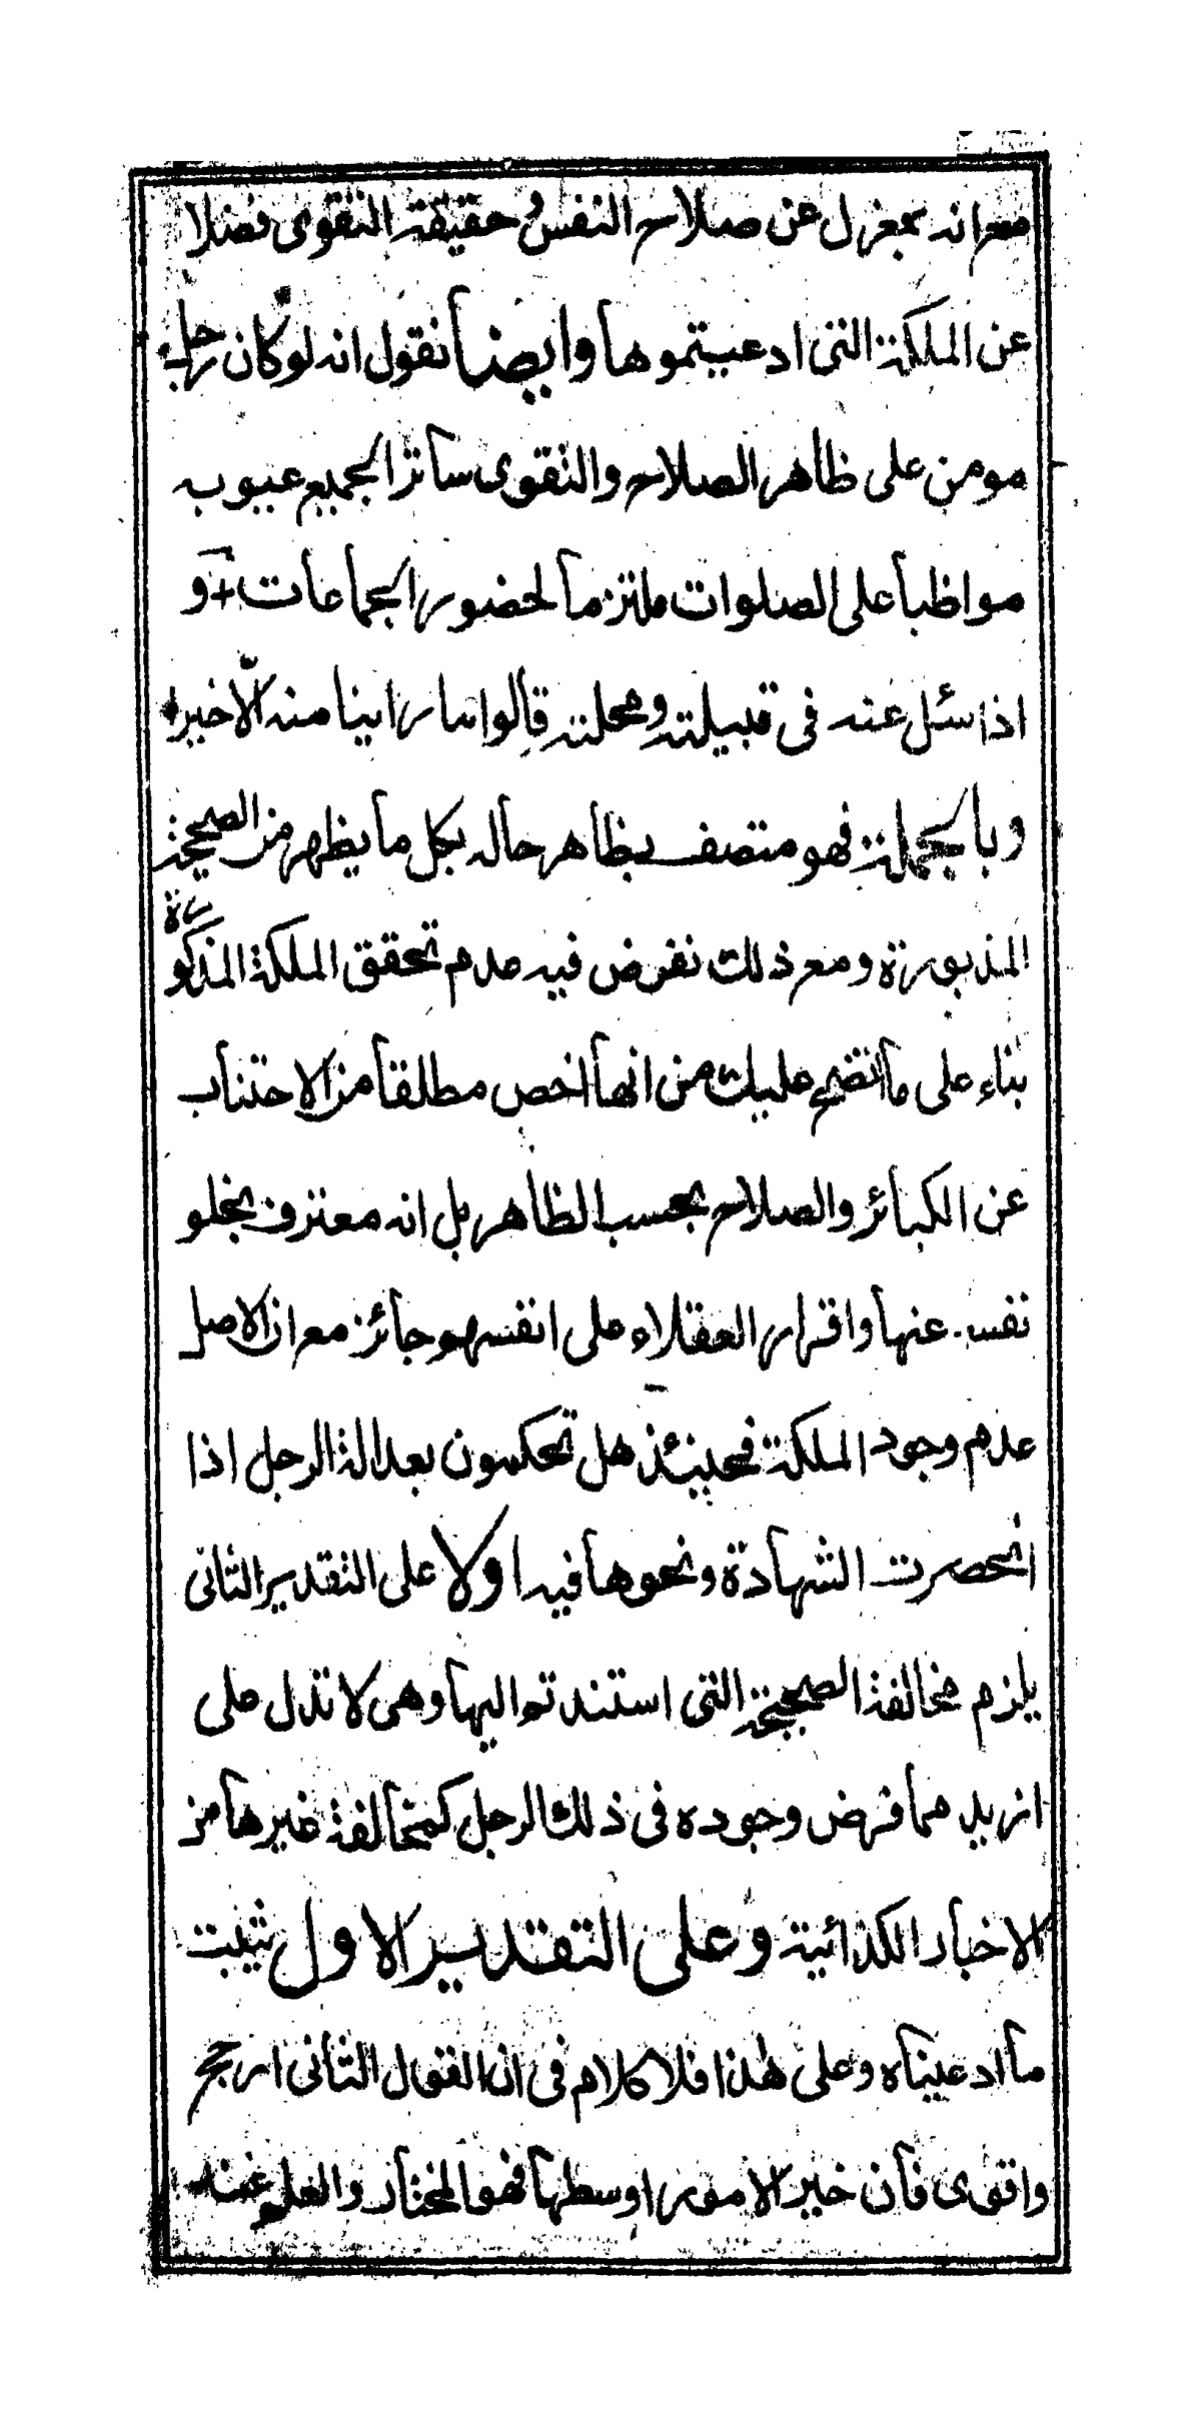 مع انه بمعزل عن صلاح النفس و حقيقة التقوى فضلا
عن الملكة التى ادعيتموها وايضا نقول انه لو كان رجل
مومن على ظاهر الصلاح والتقوى ساترا لجميع عيوبه
مواظبا على الصلوات ملتزما لحضور الجماعات و
اذا سئل عنه فى قبيلته ومحلته قالوا ما راينا منه الّا خيرا
وبالجملة فهو متصف بظاهر حاله بكل ما يظهر من الصحيحة
المذبورة ومع ذلك نفرض فيه عدم تحقق الملكة المذكورة
بناء على ما اتضح عليك من انها اخص مطلقا من الاجتناب
عن الكبائر والصلاح بحسب الظاهر بل انه معترف بخلو
نفسه عنها واقرار العقلاء على انفسهم جائز مع ان الاصل
عدم وجود الملكة فحينئذ هل تحكمون بعدالة الرجل اذا
انحصرت الشهادة ونحوها فيه او لا على التقدير الثانى
يلزم مخالفة الصحيحة التى استندتم اليها وهى لا تدل على
ازيد مما فرض وجوده فى ذلك الرجل كمخالفة غيرها من
الاخبار الكذائية وعلى التقدير الاول يثبت
ما ادعيناه وعلى هذا فلا كلام فى ان القول الثانى ارجح
واقوى فان خير الامور اوسطها فهو المختار والعلم عنه